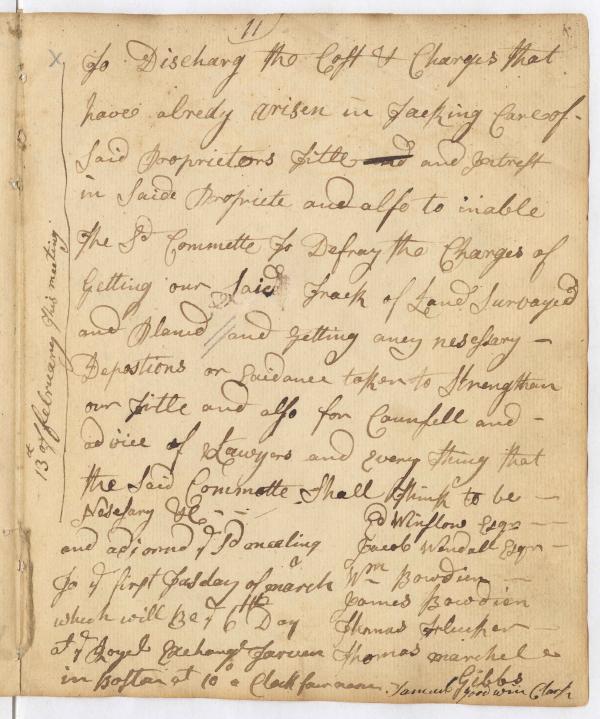 11
To Discharg the Cost & Charges that
have alredy arisen in Tacking Care of
Said Proprietors Title and Intrest
in Saide Propriete and also to inable
The Sd Committe To Defray the Charges of
Getting our Said Track of Land Survayed
and Planed and getting aney nesesary
Depostions or Eavidance taken to Strengthan
our Title and also for Counsell and
advice of Lawyers and Every thing that
the Said Committe Shall think to be
Nesesary &c
and adjornd ye Sd meeting
To ye first Tusday of march
which will Be ye 6th Day
at ye Royel Exchange Tarven
in Boston at 10 a Clock fournoon
Ed Winslow Esqr
Jacob Wendall Esqr
Wm Bowdien
James Bowdien
Thomas Flucker
Thomas marchel
Samuel Goodwin Clark
Gibbs
13 of february this meeting